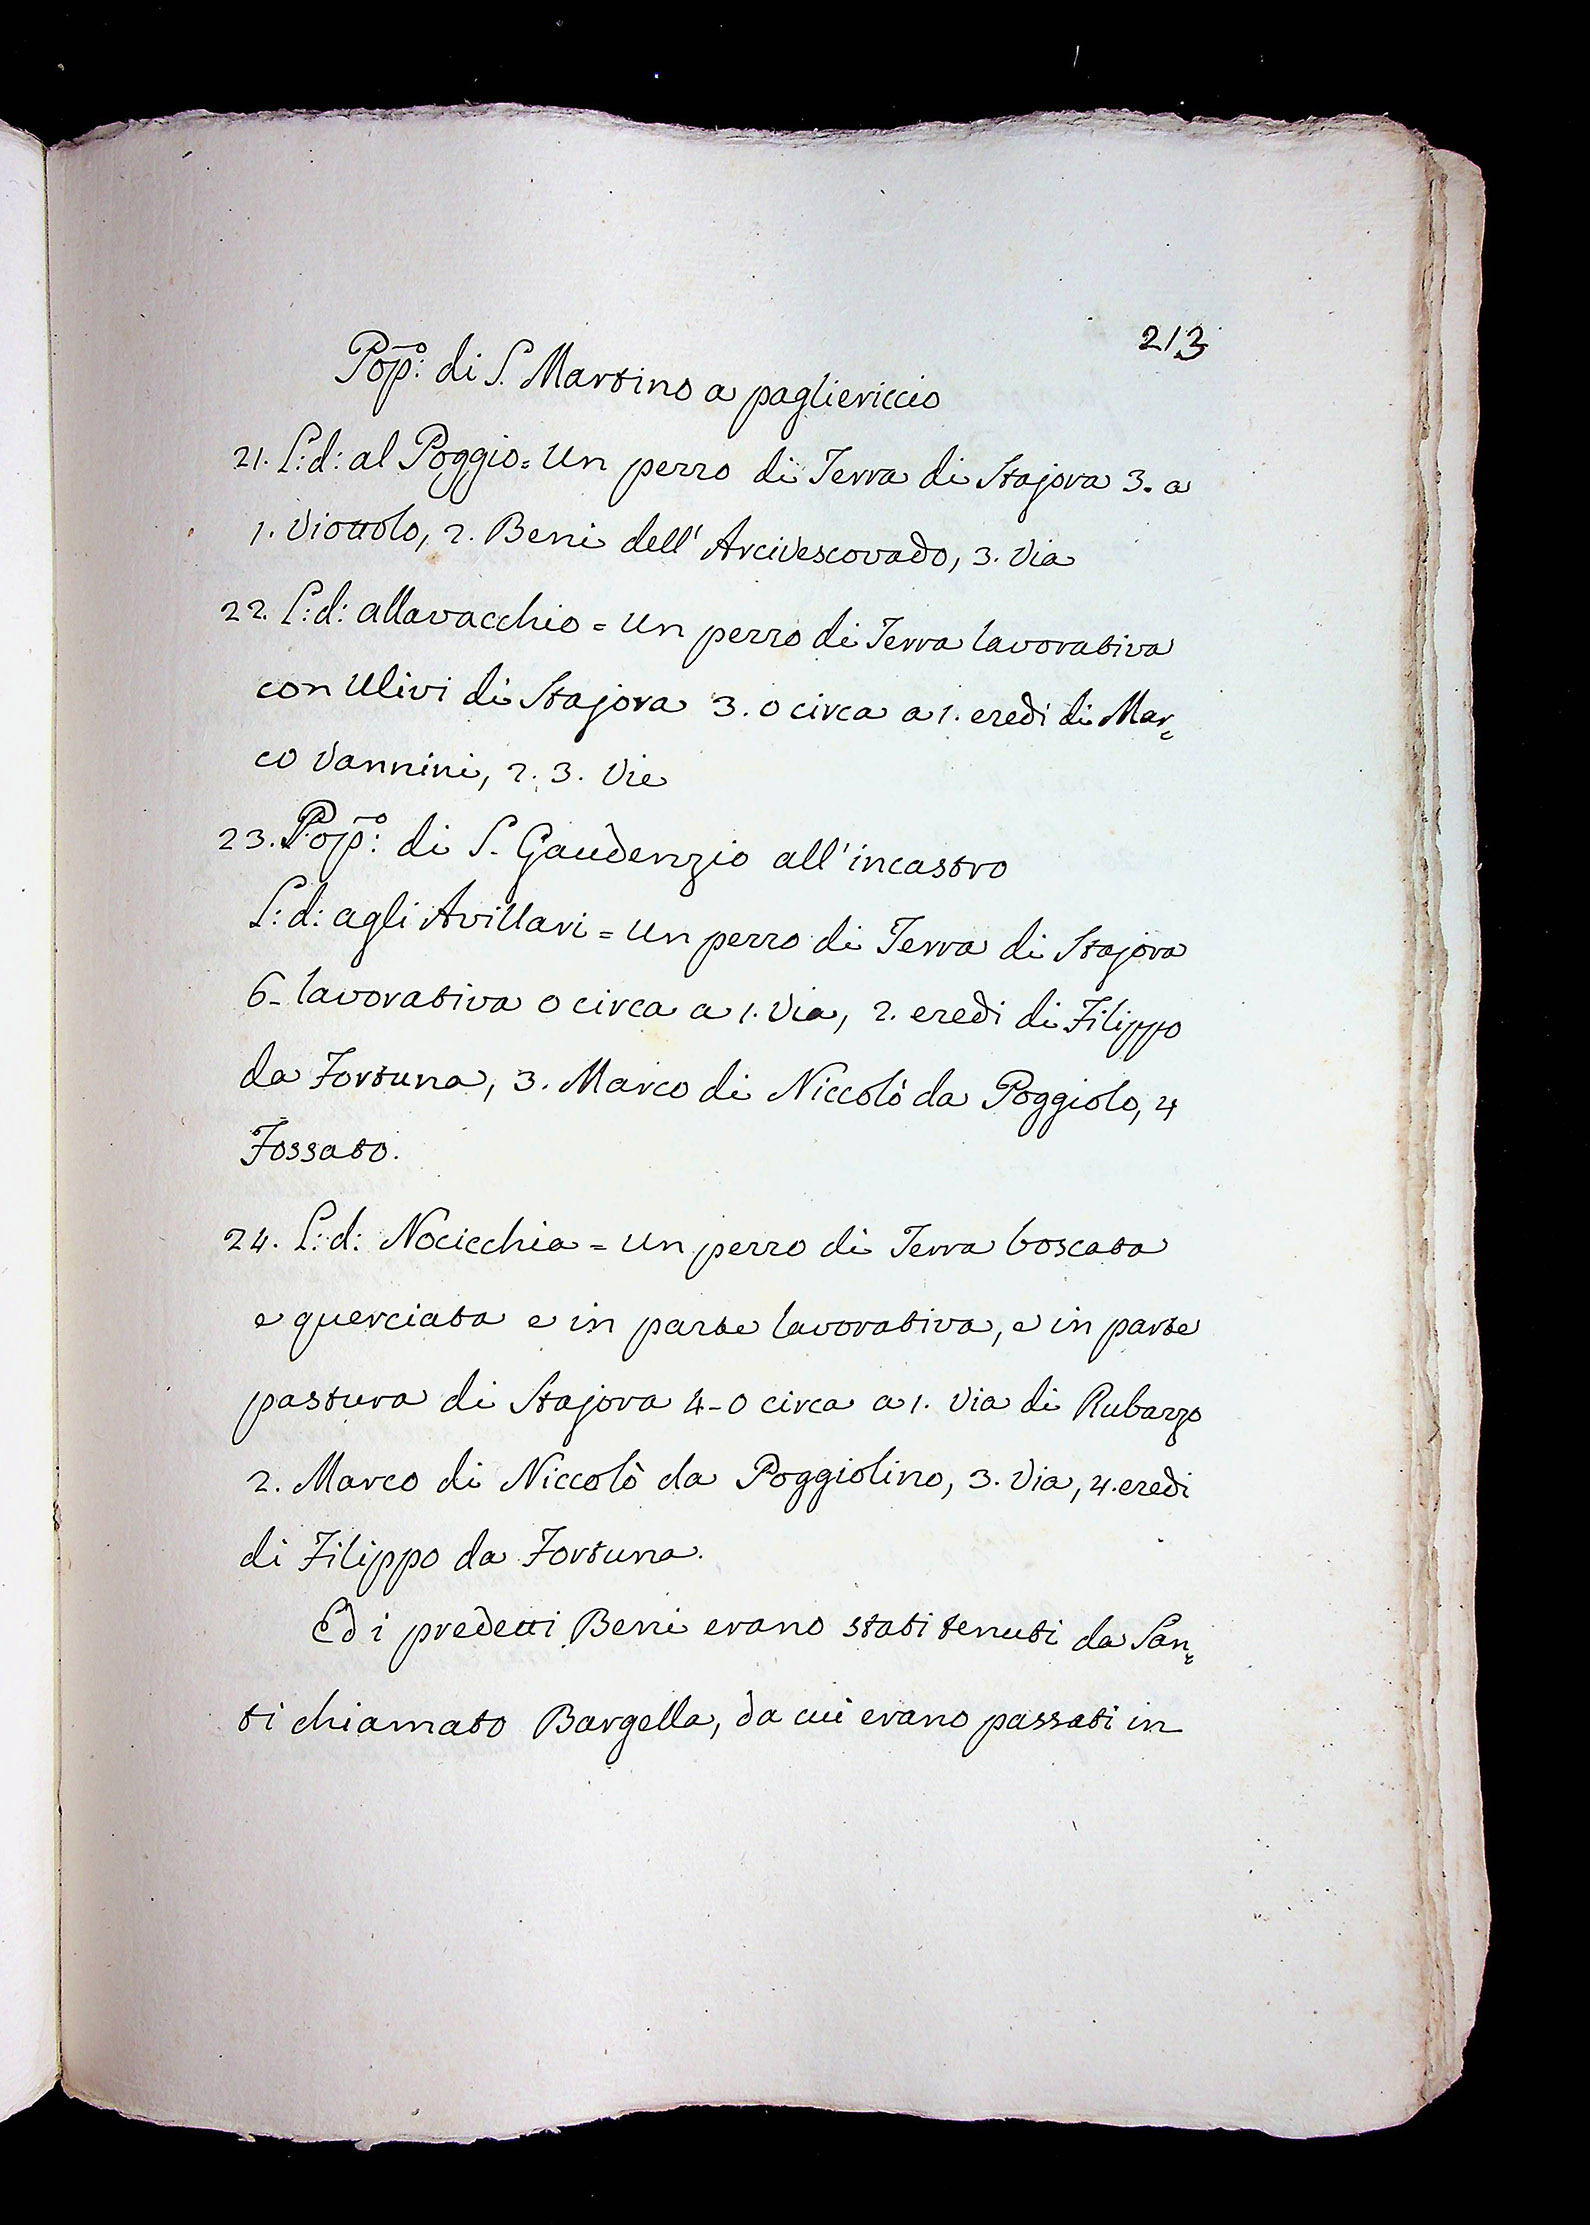 213
Pop̄o: di S. Martino a pagliericcio
21. L: d: al Poggio = Un pezzo di Terra di Stajora 3. a
1. Viottolo, 2. Beni dell' Arcivescovado, 3. Via
22. L: d: allavacchio = Un pezzo di Terra lavorativa
con Ulivi di Stajora 3. o circa a 1. eredi di Mar,
co Vannini, 2. 3. Vie
23. Pop̄o: di S. Gaudenzio all' incastro
L: d: agli Avillari = Un pezzo di Terra di Stajora
6 - lavorativa o circa a 1. Via, 2. eredi di Filippo
da Fortuna, 3. Marco di Niccolò da Poggiolo, 4
Fossato.
24. L: d: Nocicchia = Un pezzo di Terra boscata
e querciata e in parte lavorativa, e in parte
pastura di Stajora 4 - o circa a 1. Via di Rubazzo
2. Marco di Niccolò da Poggiolino, 3. Via, 4. eredi
di Filippo da Fortuna.
Ed i predetti Beni erano stati tenuti da San,
ti chiamato Bargella, da cui erano passati in